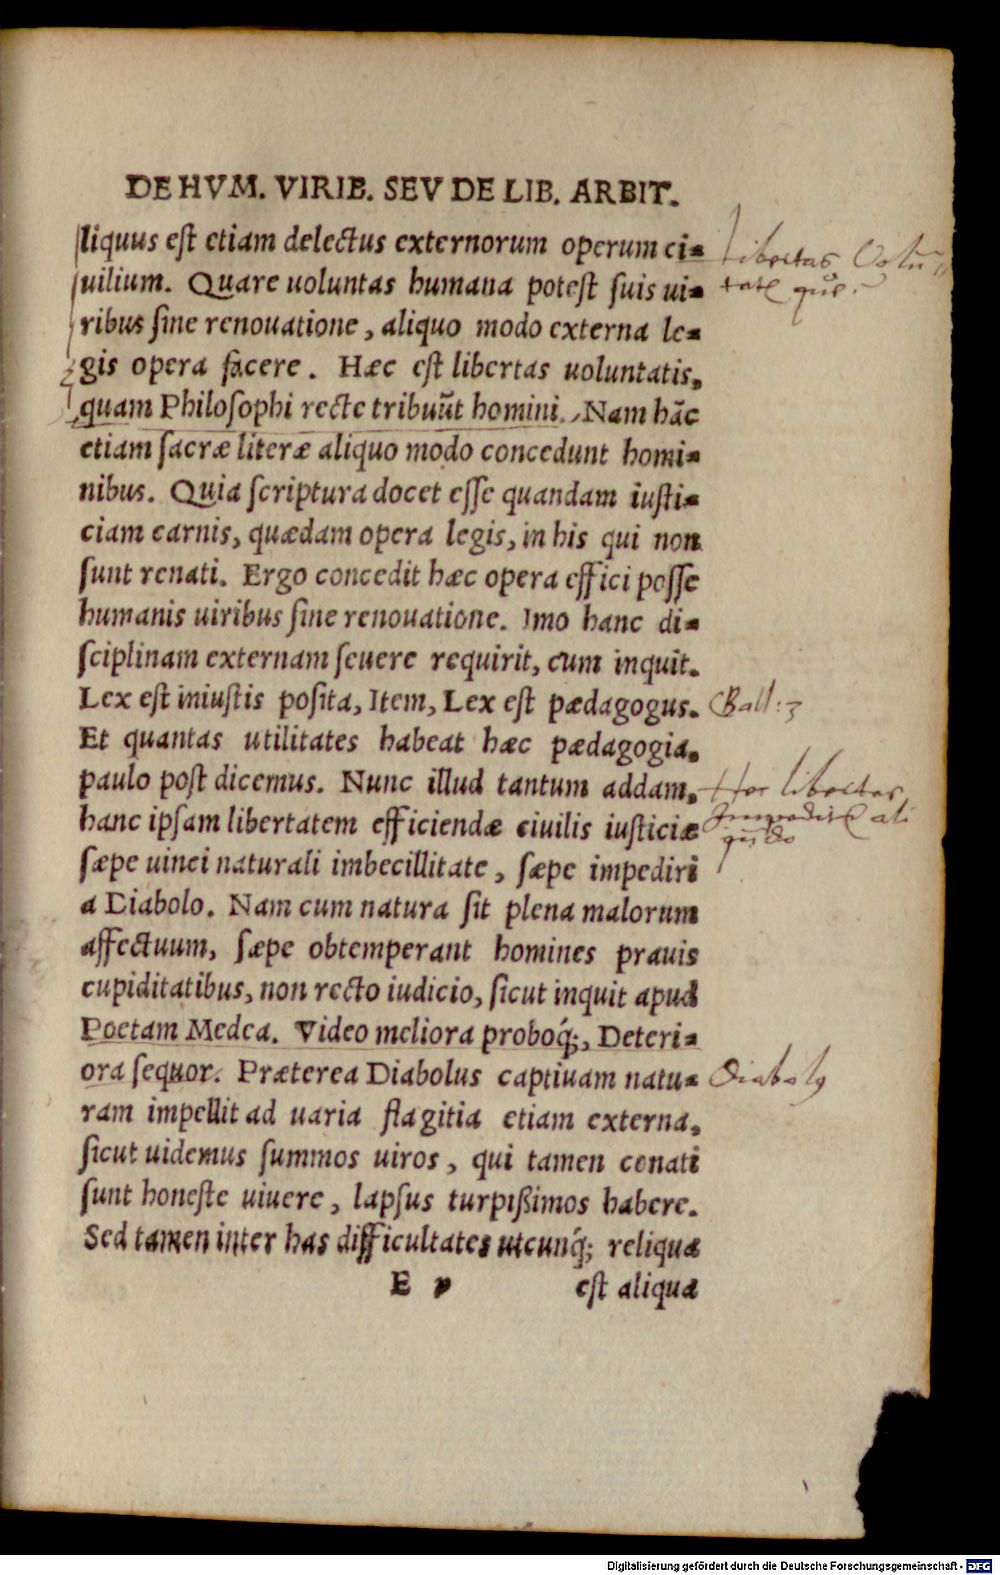 DE HVM. VIRIB. SEV DE LIB. ARBIT.
liquus est etiam delectus externorum operum ci⸗
uilium. Quare uoluntas humana potest suis ui⸗
ribus sine renouatione, aliquo modo externa le⸗
gis opera facere. Hæc est libertas uoluntatis,
quam Philosophi recte tribuũt homini. Nam hãc
etiam sacræ literæ aliquo modo concedunt homi⸗
nibus. Quia scriptura docet esse quandam iusti⸗
ciam carnis, quædam opera legis, in his qui non
sunt renati. Ergo concedit hæc opera effici posse
humanis uiribus sine renouatione. Imo hanc di⸗
sciplinam externam seuere requirit, cum inquit.
Lex est iniustis posita, Item, Lex est pædagogus.
Et quantas utilitates habeat hæc pædagogia,
paulo post dicemus. Nunc illud tantum addam,
hanc ipsam libertatem efficiendæ ciuilis iusticiæ
sæpe uinci naturali imbecillitate, sæpe impediri
a Diabolo. Nam cum natura sit plena malorum
affectuum, sæpe obtemperant homines prauis
cupiditatibus, non recto iudicio, sicut inquit apud
Poetam Medea. Video meliora proboq́;, Deteri⸗
ora sequor. Præterea Diabolus captiuam natu⸗
ram impellit ad uaria flagitia etiam externa,
sicut uidemus summos uiros, qui tamen conati
sunt honeste uiuere, lapsus turpißimos habere.
Sed tamen inter has difficultates utcunq́; reliqua
E v est aliqua
Libertas
libertas
Diabolus
Digitalisierung gefördert durch die Deutsche Forschungsgemeinschaft - DFG